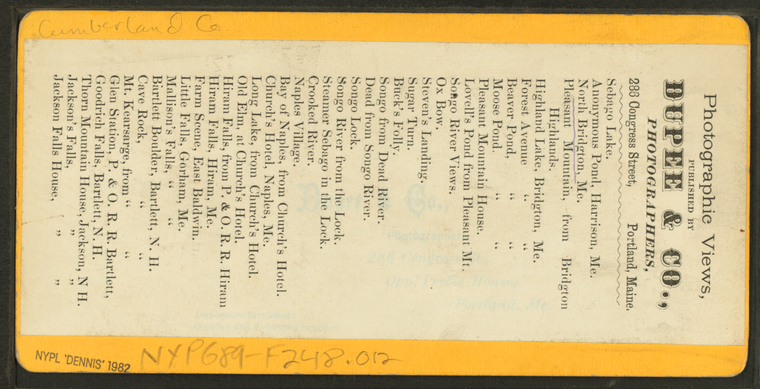 Cumberland Co
Photographic Views,
PUBLISHED BY
DUPEE & CO.,
PHOTOGRAPHERS,
283 Congress Street, Portland, Maine.
Sebago Lake.
Anonymous Pond, Harrison, Me.
North Bridgton, Me.
Pleasant Mountain, from Bridgton
Highlands.
Highland Lake, Bridgton, Me.
Forest Avenue " "
Beaver Pond, " "
Moose Pond. " "
Pleasant Mountain House.
Lovell's Pond from Pleasant Mt.
Songo River Views.
Ox Bow.
Steven's Landing.
Sugar Turn.
Buck's Folly.
Songo from Dead River.
Dead from Songo River.
Songo Lock.
Songo River from the Lock.
Steamer Sebago in the Lock.
Crooked River.
Naples Village.
Bay of Naples, from Church's Hotel.
Church's Hotel, Naples, Me.
Long Lake, from Church's Hotel.
Old Elm, at Church's Hotel.
Hiram Falls, from P. & O. R. R. Hiram
Hiram Falls, Hiram, Me.
Farm Scene, East Baldwin.
Little Falls, Gorham, Me.
Mallison's Falls, " "
Bartlett Boulder, Bartlett, N. H.
Cave Rock, " "
Mt. Kearsarge, from " "
Glen Station, P. & O. R. R. Bartlett,
Goodrich Falls, Bartlett, N. H.
Thorn Mountain House, Jackson, N H.
Jackson's Falls, " "
Jackson Falls House, " "
NYPL 'DENNIS' 1982
NYPG89-F248.012